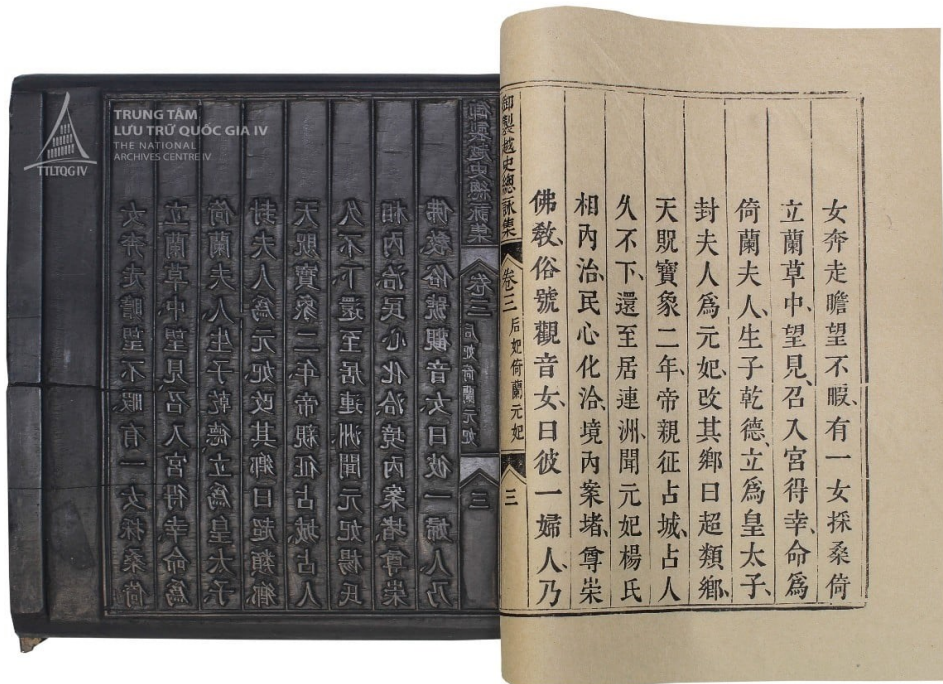 TRUNG TÂM
LƯU TRỮ QUỐC GIA IV
THE NATIONAL
ARCHIVES CENTRE IV
TTLTQG IV
女奔走瞻望不暇、有一女採桑倚
立蘭草中、望見、召入宮得幸、命爲
倚蘭夫人、生子乾德、立爲皇太子、
封夫人爲元妃、改其鄉曰超類鄉、
天貺寶象二年、帝親征占城、占人
久不下、還至居連洲、聞元妃楊氏
相內治、民心化洽、境內案堵、尊崇
佛敎、俗號觀音女、曰彼一婦人、乃
御製越史總詠集 卷三 后妃倚蘭元妃 三